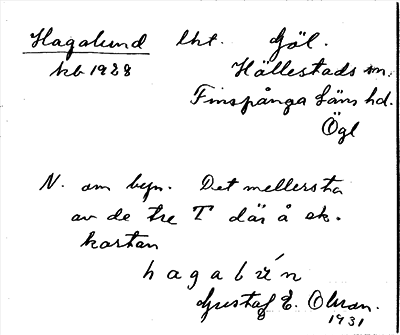 Hagalund lht. Göl.
kb 1928 Hällestads sn.
Finspånga läns hd.
Ögl
N. om byn. Det mellersta
av de tre T där å ek.
kartan
Gustaf E. Olsson.
1931